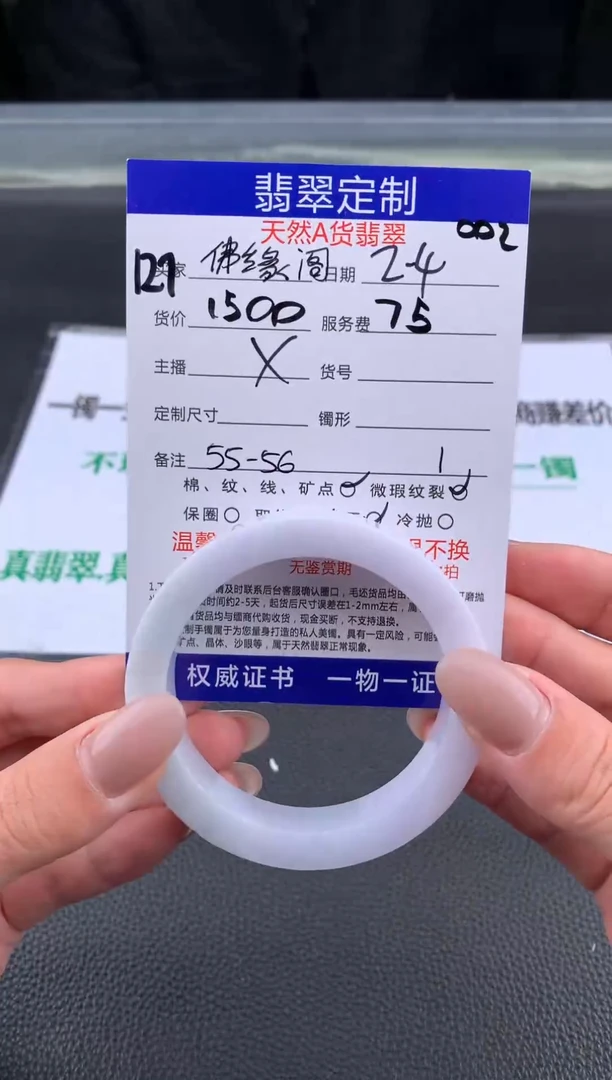 翡翠定制
天然A货翡翠 002
127 家 佛缘阁 日期 24
货价 1500 服务费 75
主播 X 货号
定制尺寸 镯形
备注 55-56 1
棉、纹、线、矿点 微瑕纹裂
保圈 冷抛
温馨 不换
无鉴赏期 拍
请及时联系后台客服确认圈口，毛坯货品均由 打磨抛
时间约2-5天，起货后尺寸误差在1-2mm左右，属
货品均与缅商代购收货，现金买断，不支持退换。
制手镯属于为您量身打造的私人美镯。具有一定风险，可能
矿点、晶体、沙眼等，属于天然翡翠正常现象。
权威证书 一物一证
商赚差价
一镯
真翡翠.真